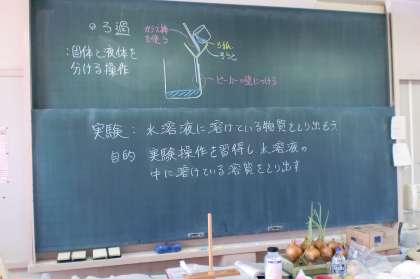 ろ過
:固体と液体を
分ける操作
ガラス棒
を使う
ろ紙
ろうと
ビーカーの壁につける
実験:水溶液に溶けている物質をとり出そう
目的 実験操作を習得し水溶液の
中に溶けている溶質をとり出す